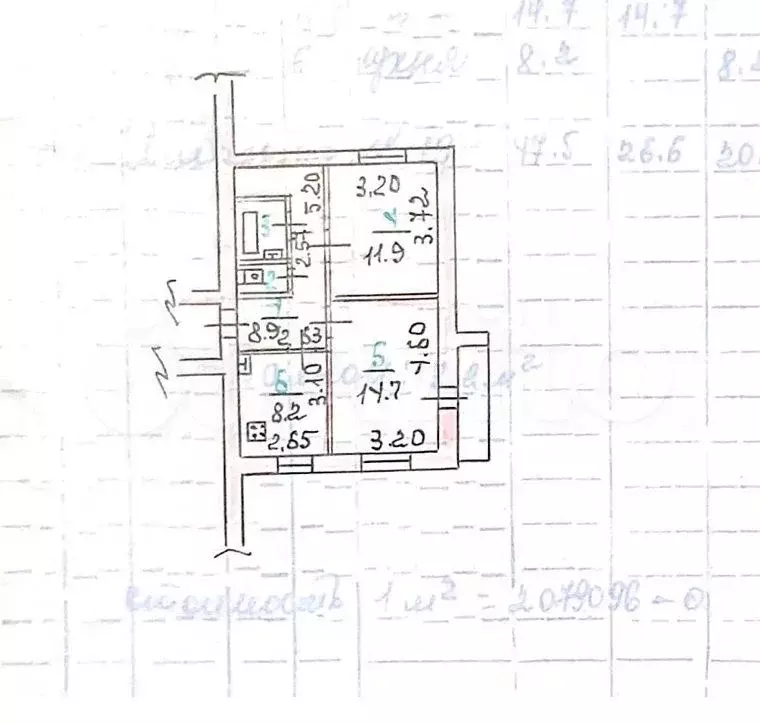 14.7 14.7
6 кухня 8.2 8.2
47.5 26.6 20.
3.20
5.20
3.72
3
2.57
11.9
2
1
8.9
2.63
5
4.60
14.7
3.10
6
8.2
2.65
3.20
м²
стоимость 1 м² = 2079096 - 0